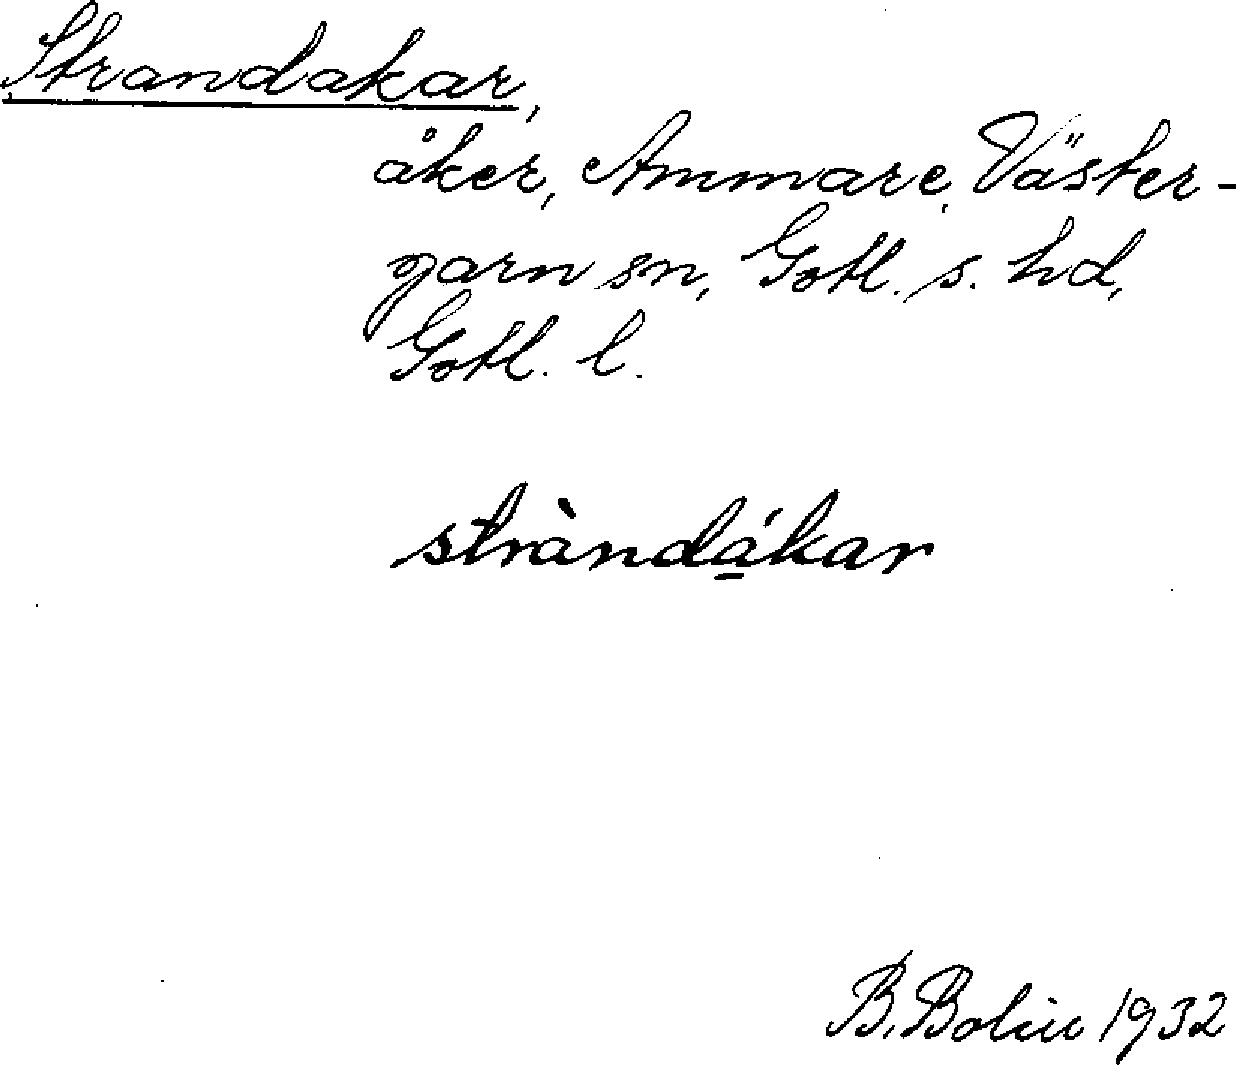 Strandakar,
åker, Ammare, Väster-
garn sn, Gotl. s. hd,
Gotl. l.
stràndá̱kar
B. Bolin 1932